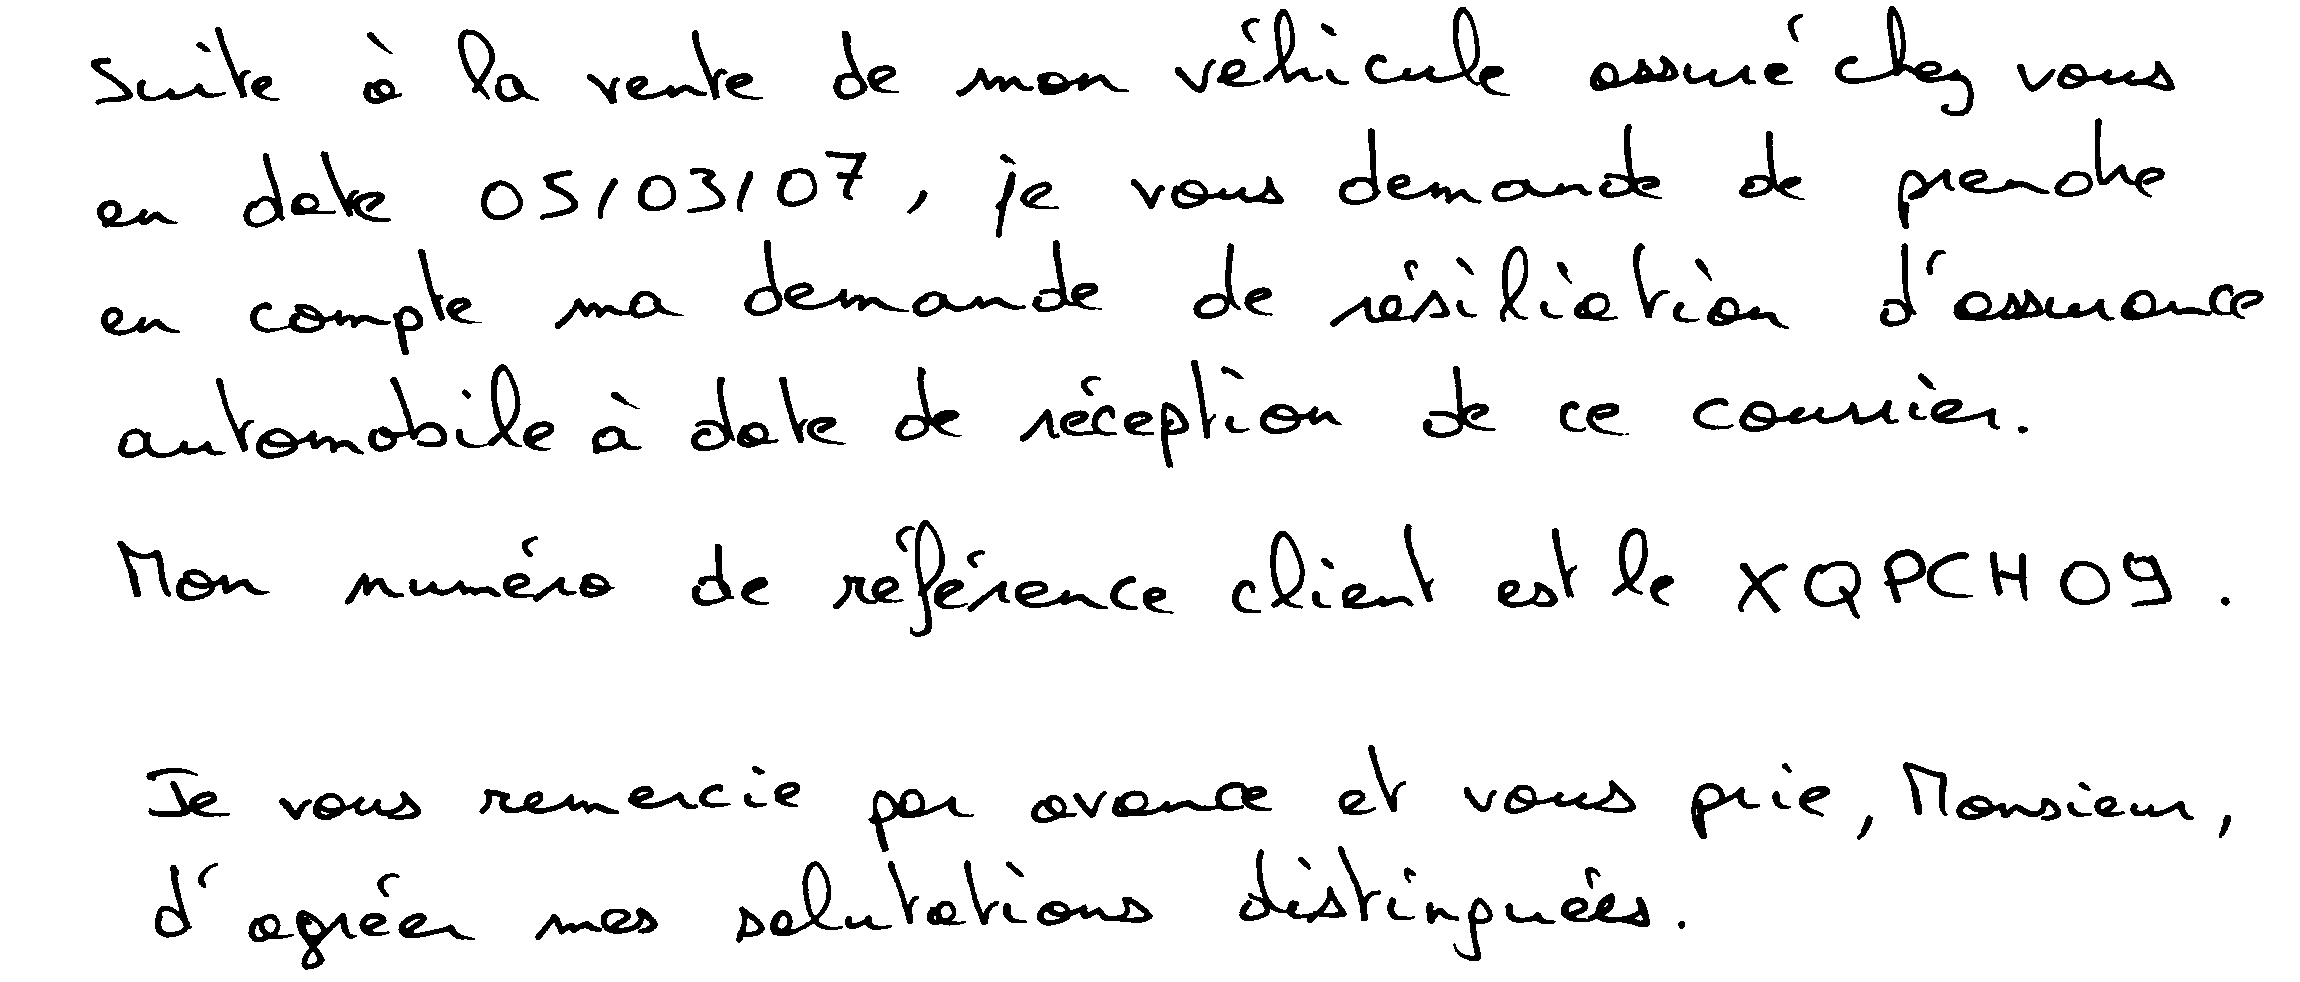 Suite à la vente de mon véhicule assuré chez vous
en date 05/03/07, je vous demande de prendre
en compte ma demande de résiliation d'assurance
automobile à date de réception de ce courrier.
Mon numéro de référence client est le XQPCH09.
Je vous remercie par avance et vous prie, Monsieur,
d'agréer mes salutations distinguées.